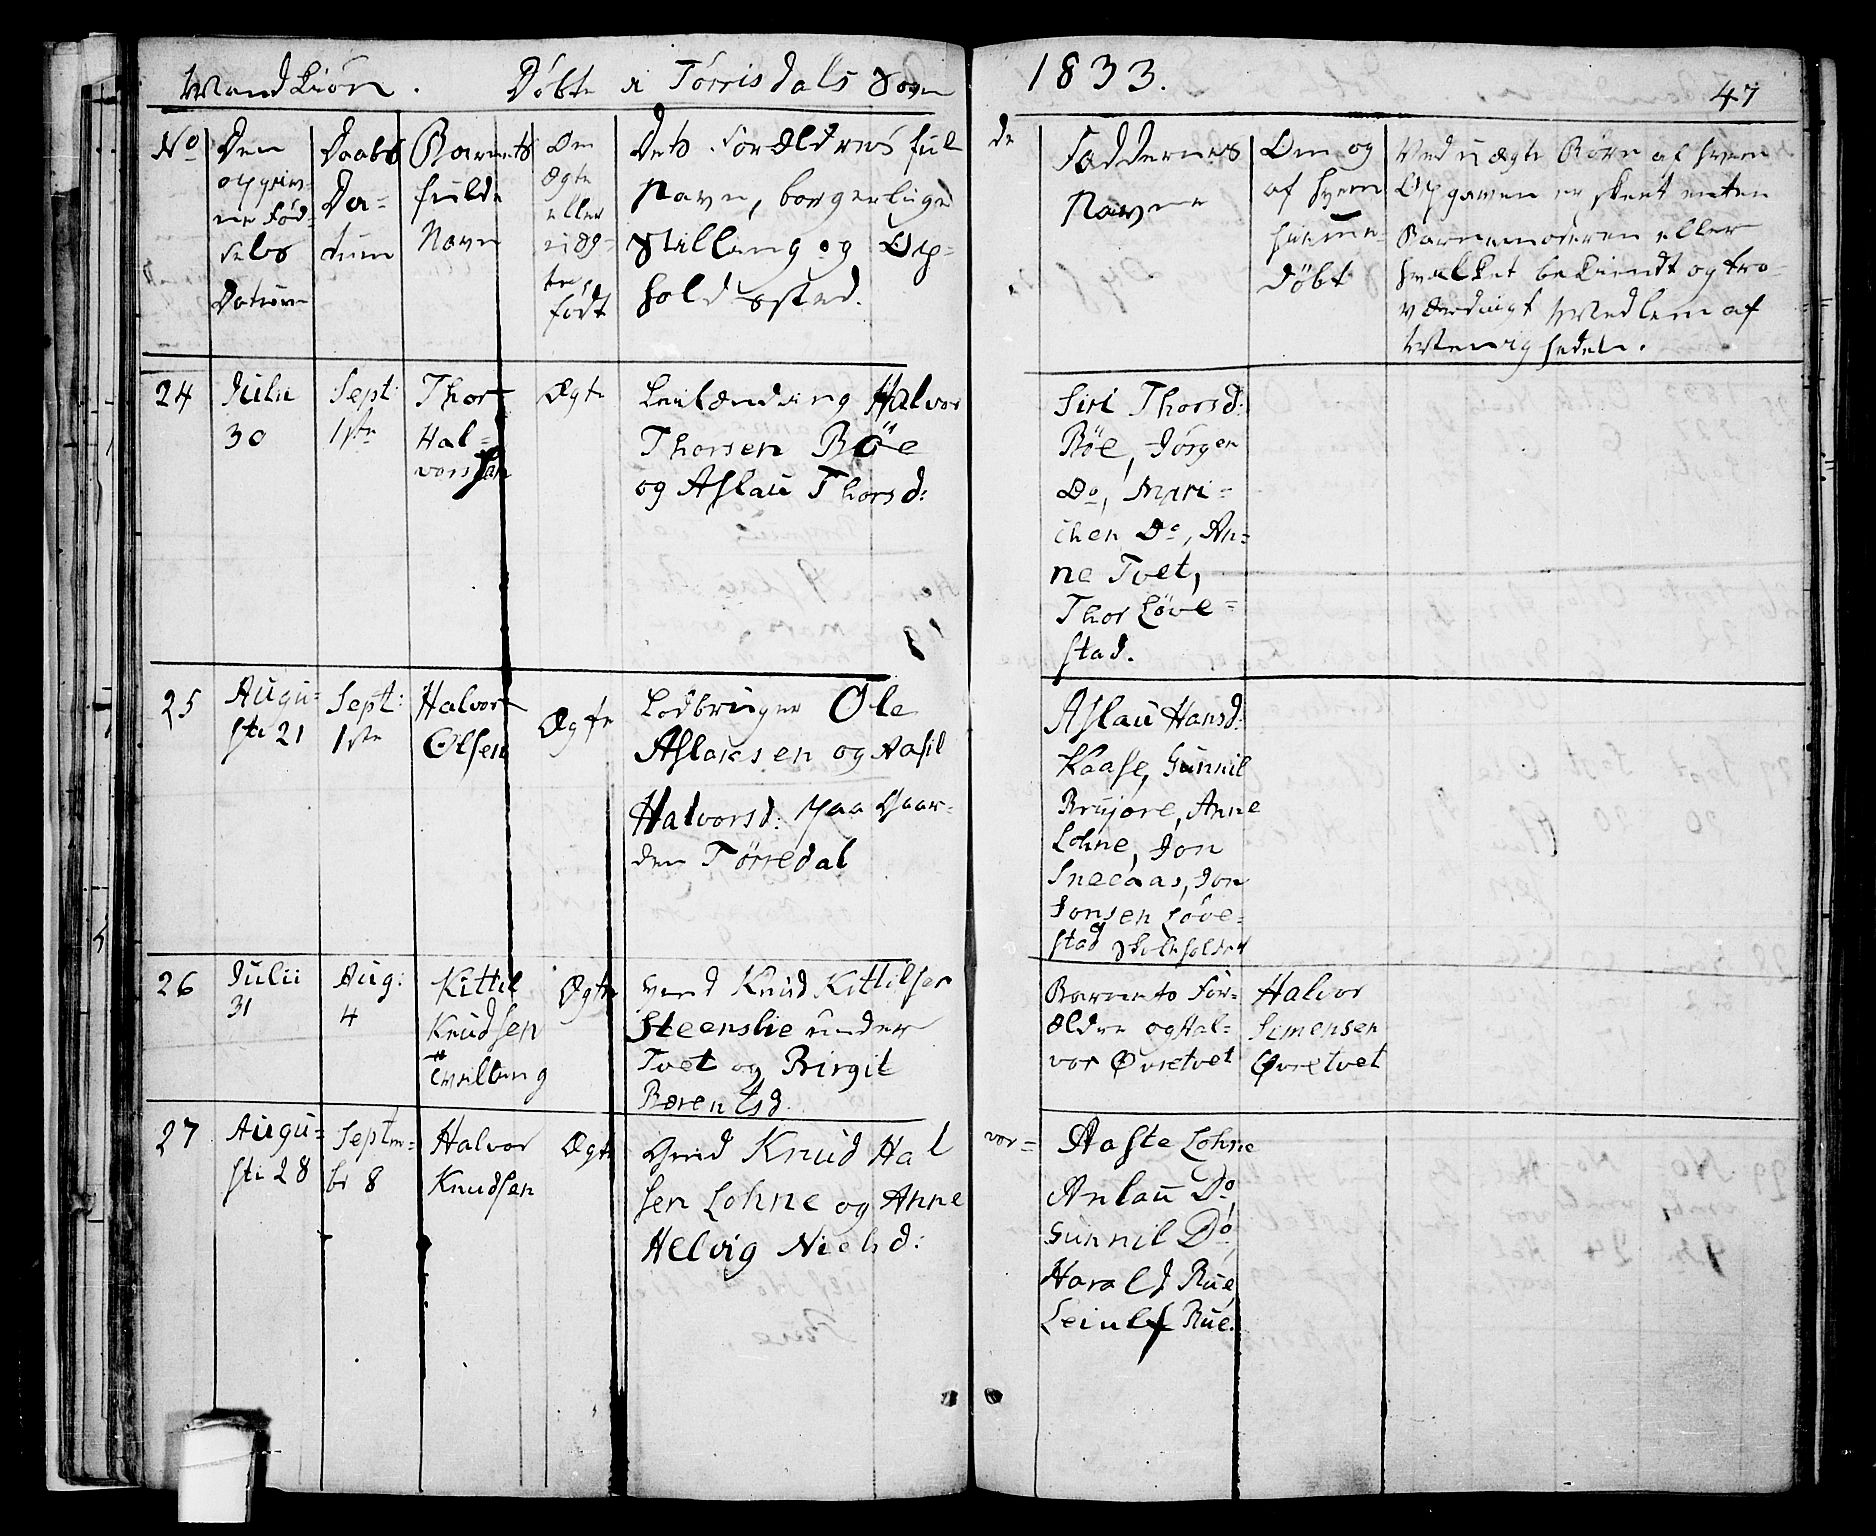 Mandkiön. Döbte i Törrisdals Sogn 1833.
47
No
Den opgivne Fødselss Datum
Daabs Datum
Barnets fulde Navn
Om Ægte eller uægte, født
Dets Forældres fulde
Navn, borgerlige
Stilling og Op-
holdssted.
Faddernes
Navne
Om og
af hvem
hjemme-
døbt
Ved uægte Børn af hvem
Opgaven er skeet enten
Barnemoderen eller
hvilket bekiendt og tro-
værdigt Medlem af
Menigheden.
24
Julii
30
Sept:
1ste
Thor
Hal-
vorssen
Ægte
Leilænding Halvor
Thorsen Böe
og Aslau Thorsd:
Siri Thorsd:
Böe, Jörgen
Do, Mari-
chen Do, An-
ne Tvet,
Thor Løve-
stad.
25
Augu-
sti 21
Sept:
1ste
Halvor
Olsen
Ægte
Lodbruger Ole
Aslaksen og Aasil
Halvorsd: paa Gaar-
den Törredal
Aslau Hansd:
Kaase, Gunnil
Brujore, Anne
Lohne, Jon
Snecaas, Jon
Jonsen Løve-
stad Skoleholder
26
Julii
31
Aug:
4
Kittil
Knudsen
Tvilling
Ægte
Knud Kittilsen
Steenslie under
Tvet og Birgit
Berentsd.
Barnets For-
ældre og Hal-
vor Øvretvet
Halvor
Simensen
Øvretvet
27
Augu-
sti 28
Septem-
br 8
Halvor
Knudsen
Ægte
Gmd Knud Halvor-
sen Lohne og Anne
Helvig Nielsd:
Aaste Lohne
Anlau Do,
Gunnil Do,
Harald Rue,
Leiulf Rue.